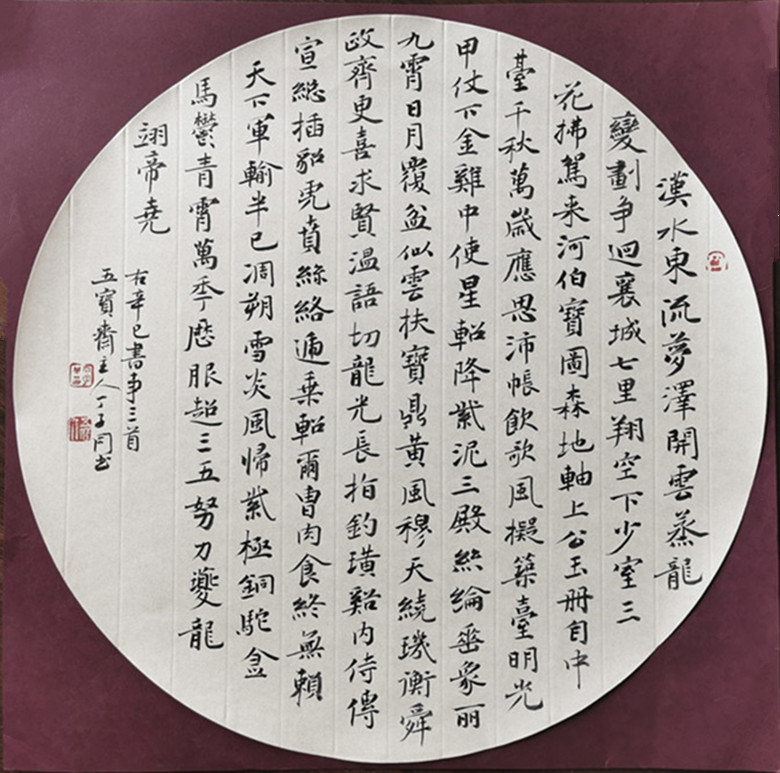 漢水東流夢澤開雲蒸龍
變劃爭迴襄城七里翔空下少室三
花拂駕来河伯寶圖森地軸上公玉冊自中
臺千秋萬歲應思沛帳飲歌風擬築臺明光
甲仗下金雞中使星軺降紫泥三殿絲綸垂象麗
九霄日月覆盆低雲扶寶鼎黄風穆天繞璣衡舜
政齊更喜求賢温語切龍光長指釣璜谿内侍傳
宣總插貂虎賁絲絡遍乗軺爾曹肉食終無賴
天下軍輸半已凋朔雪炎風帰紫極銅駝金
馬鬱青霄萬年歷服超三五努力夔龍
翊帝堯
右辛巳書事三首
五寶齋主人丁子門书